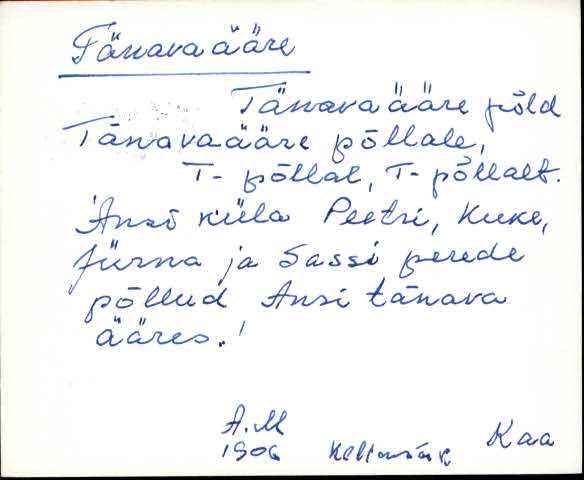 Tänavaääre
Tänavaääre põld
Tänavaääre põllale,
T- põllal, T- põllalt.
'Ansi küla Peetri, Kuke,
Jürna ja Sassi perede
põllud Ansi tänava
ääres.'
A.M
1906 Kaa